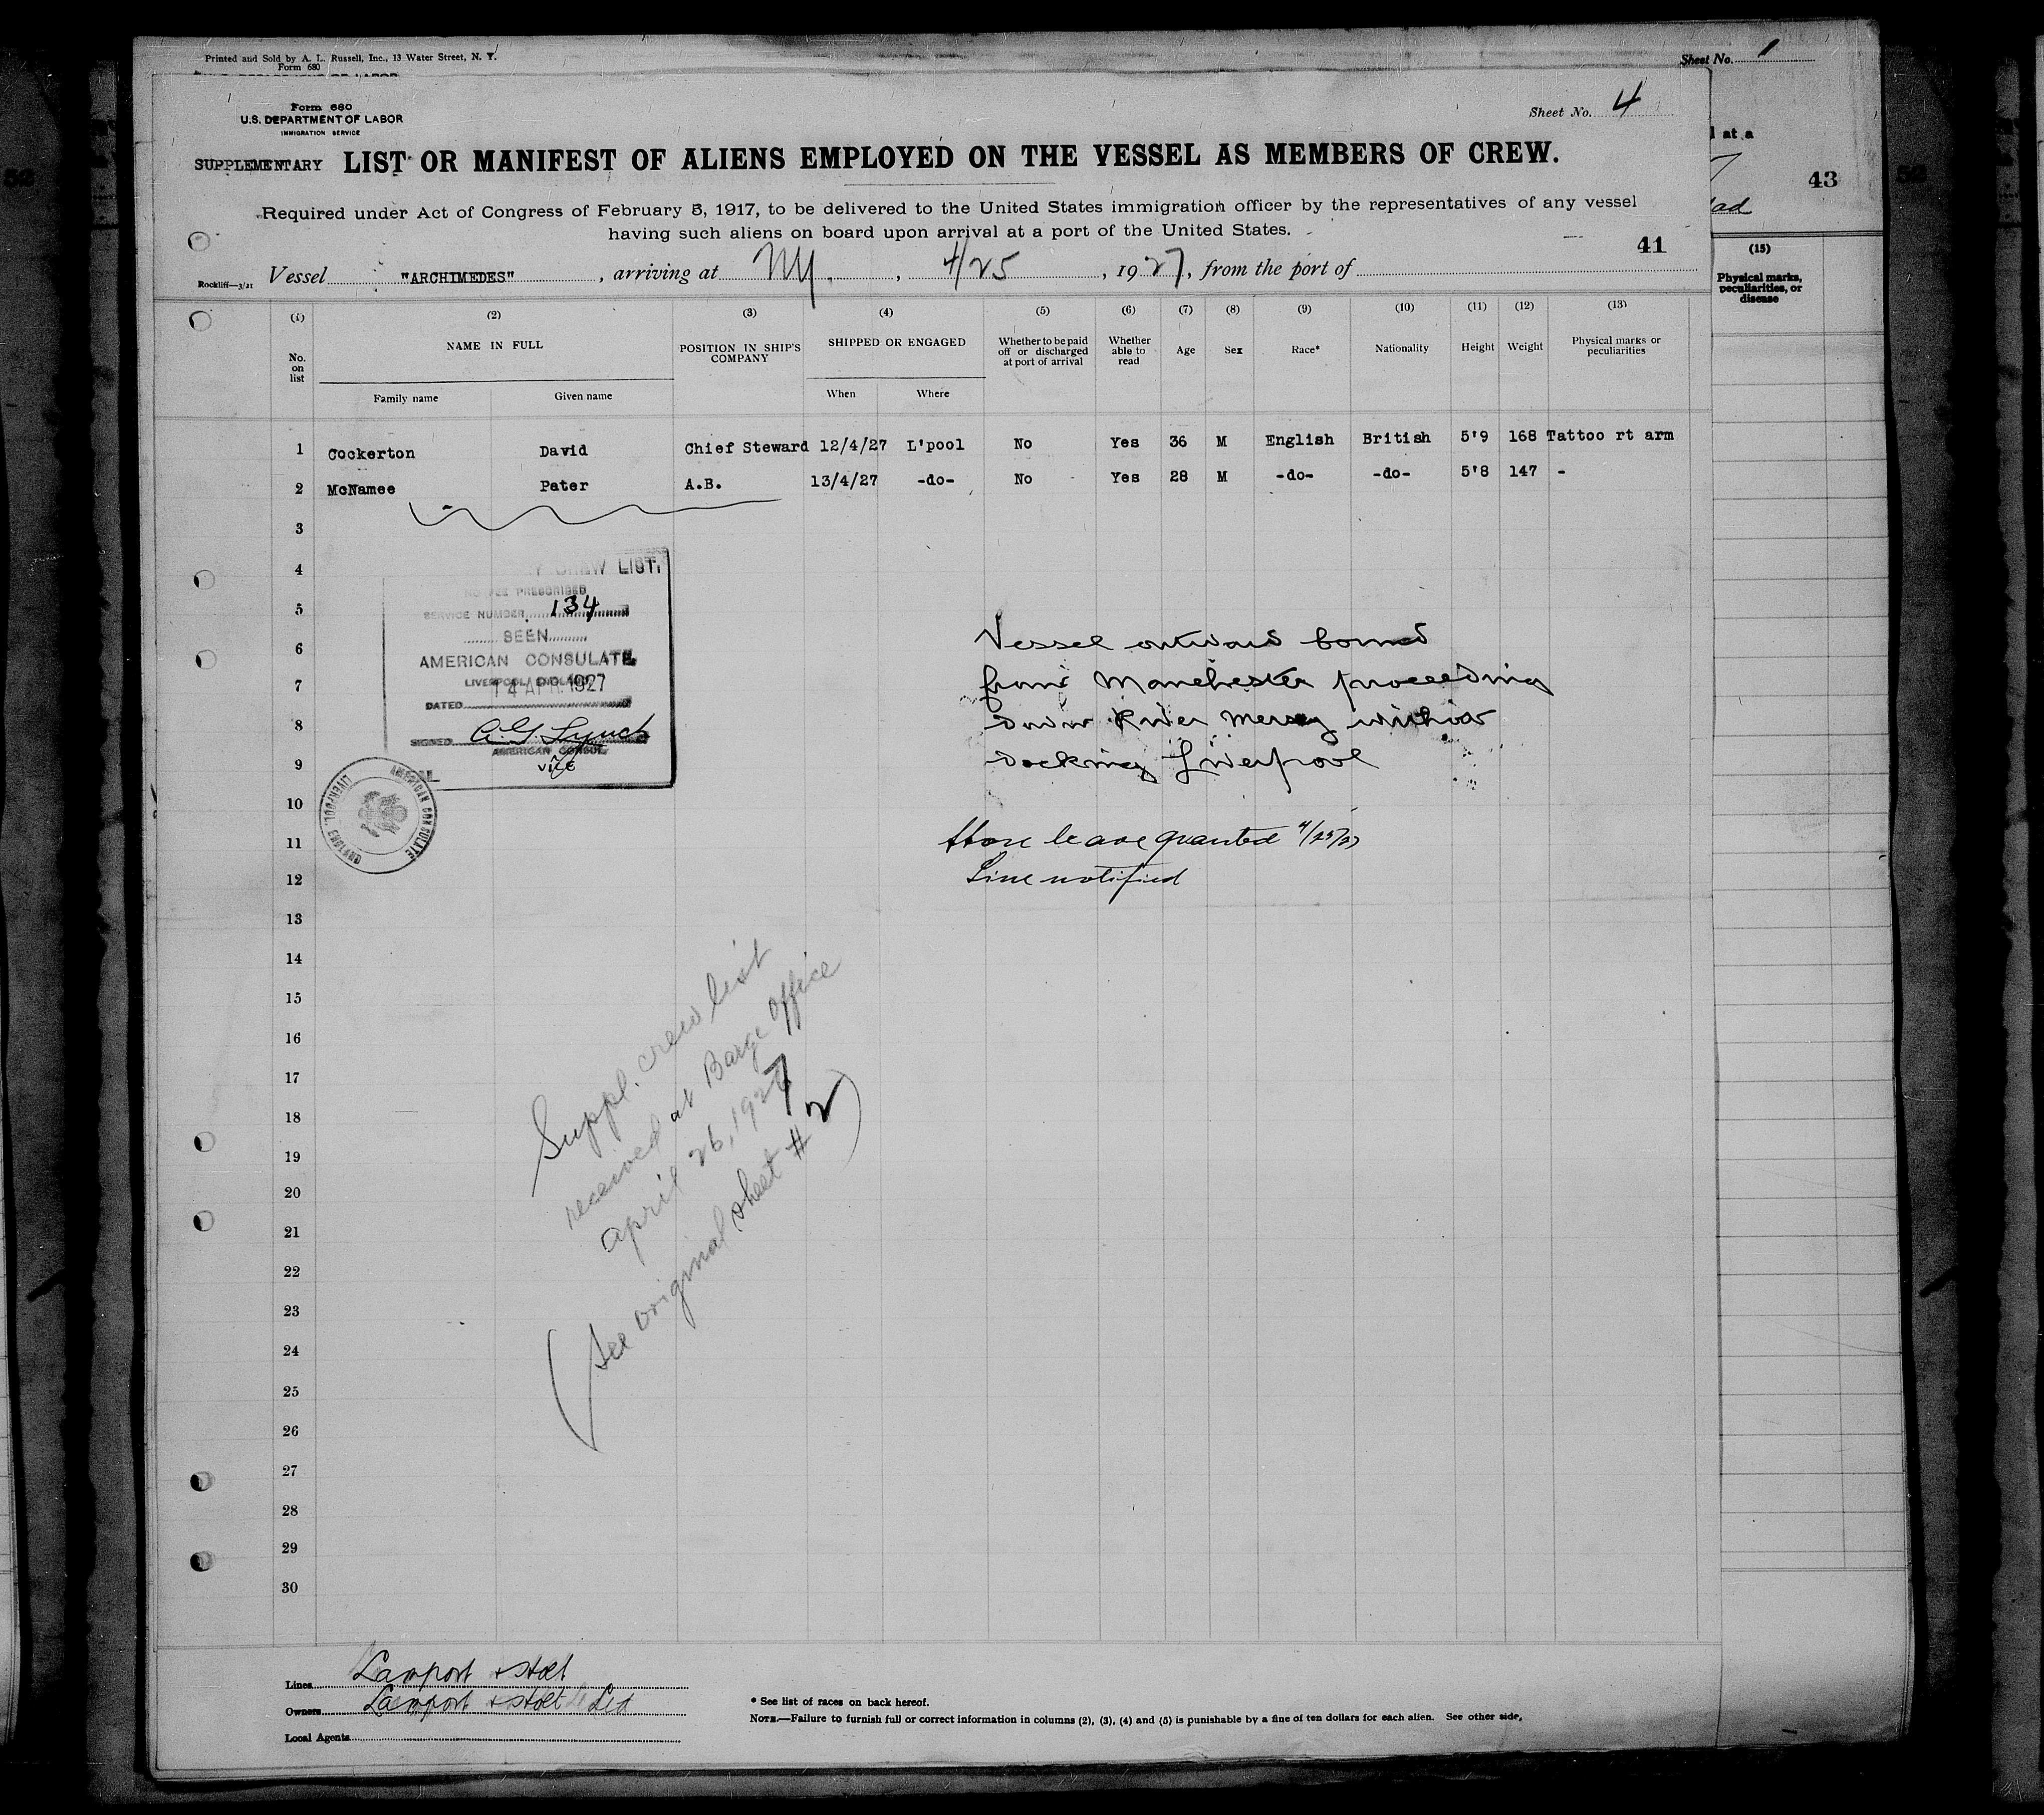 Printed and Sold by A. L. Russell, Inc., 13 Water Street, N. Y.
Form 680
Sheet No. 1
Form 680
U.S. DEPARTMENT OF LABOR
IMMIGRATION SERVICE
Sheet No. 4
SUPPLEMENTARY LIST OR MANIFEST OF ALIENS EMPLOYED ON THE VESSEL AS MEMBERS OF CREW.
Required under Act of Congress of February 5, 1917, to be delivered to the United States immigration officer by the representatives of any vessel
having such aliens on board upon arrival at a port of the United States.
41
at a
43
Rockliff—3/21
Vessel "ARCHIMEDES", arriving at NY., 4/25, 1927, from the port of
(15)
Physical marks, peculiarities, or disease
(1) (2) (3) (4) (5) (6) (7) (8) (9) (10) (11) (12) (13)
No. on list NAME IN FULL POSITION IN SHIP'S COMPANY SHIPPED OR ENGAGED Whether to be paid off or discharged at port of arrival Whether able to read Age Sex Race* Nationality Height Weight Physical marks or peculiarities
Family name Given name When Where
1 Cockerton David Chief Steward 12/4/27 L'pool No Yes 36 M English British 5'9 168 Tattoo rt arm
2 McNamee Pater A.B. 13/4/27 -do- No Yes 28 M -do- -do- 5'8 147 -
3
4
5
6
7
8
9
10
11
12
13
14
15
16
17
18
19
20
21
22
23
24
25
26
27
28
29
30
CREW LIST.
NO FEE PRESCRIBED
SERVICE NUMBER 134
SEEN
AMERICAN CONSULATE
LIVERPOOL, ENGLAND
14 APR 1927
DATED
SIGNED A.G. Lynch
AMERICAN CONSUL
vice
AMERICAN CONSULATE
LIVERPOOL, ENGLAND
Vessel outward bound
from Manchester proceeding
down River Mersey without
docking Liverpool
Shore leave granted 4/25/27
Line notified
Suppl. crew list
received at Barge Office
April 26, 1927
(See original sheet # 2)
Lines Lamport & Holt
Owners Lamport & Holt Ltd
Local Agents
* See list of races on back hereof.
NOTE.—Failure to furnish full or correct information in columns (2), (3), (4) and (5) is punishable by a fine of ten dollars for each alien. See other side.